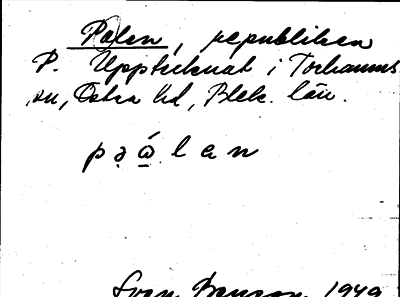 Polen, republiken
P. Upptecknat i Torhamns
sn, Östra hd, Blek. län.
pəω̇lan
Sven Benson 1949